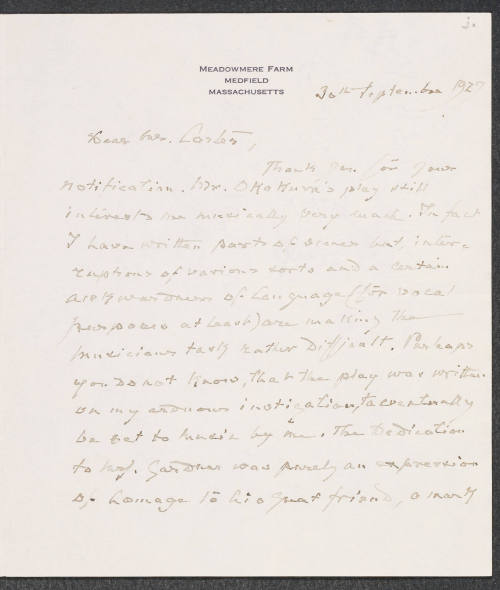 3.
MEADOWMERE FARM
MEDFIELD
MASSACHUSETTS
30th September 1927
Dear Mr. Carter,
Thank you for your
notification. Mr. Okakura's play still
interests me musically very much. In fact
I have written parts of scenes but, inter-
ruptions of various sorts and a certain
awkwardness of language (for vocal
purposes at least) are making the
musicians task rather difficult. Perhaps
you do not know, that the play was written
on my instigation, to eventually
be set to music by me. The Dedication
to Mrs. Gardner was purely an expression
of homage to his great friend, a mark